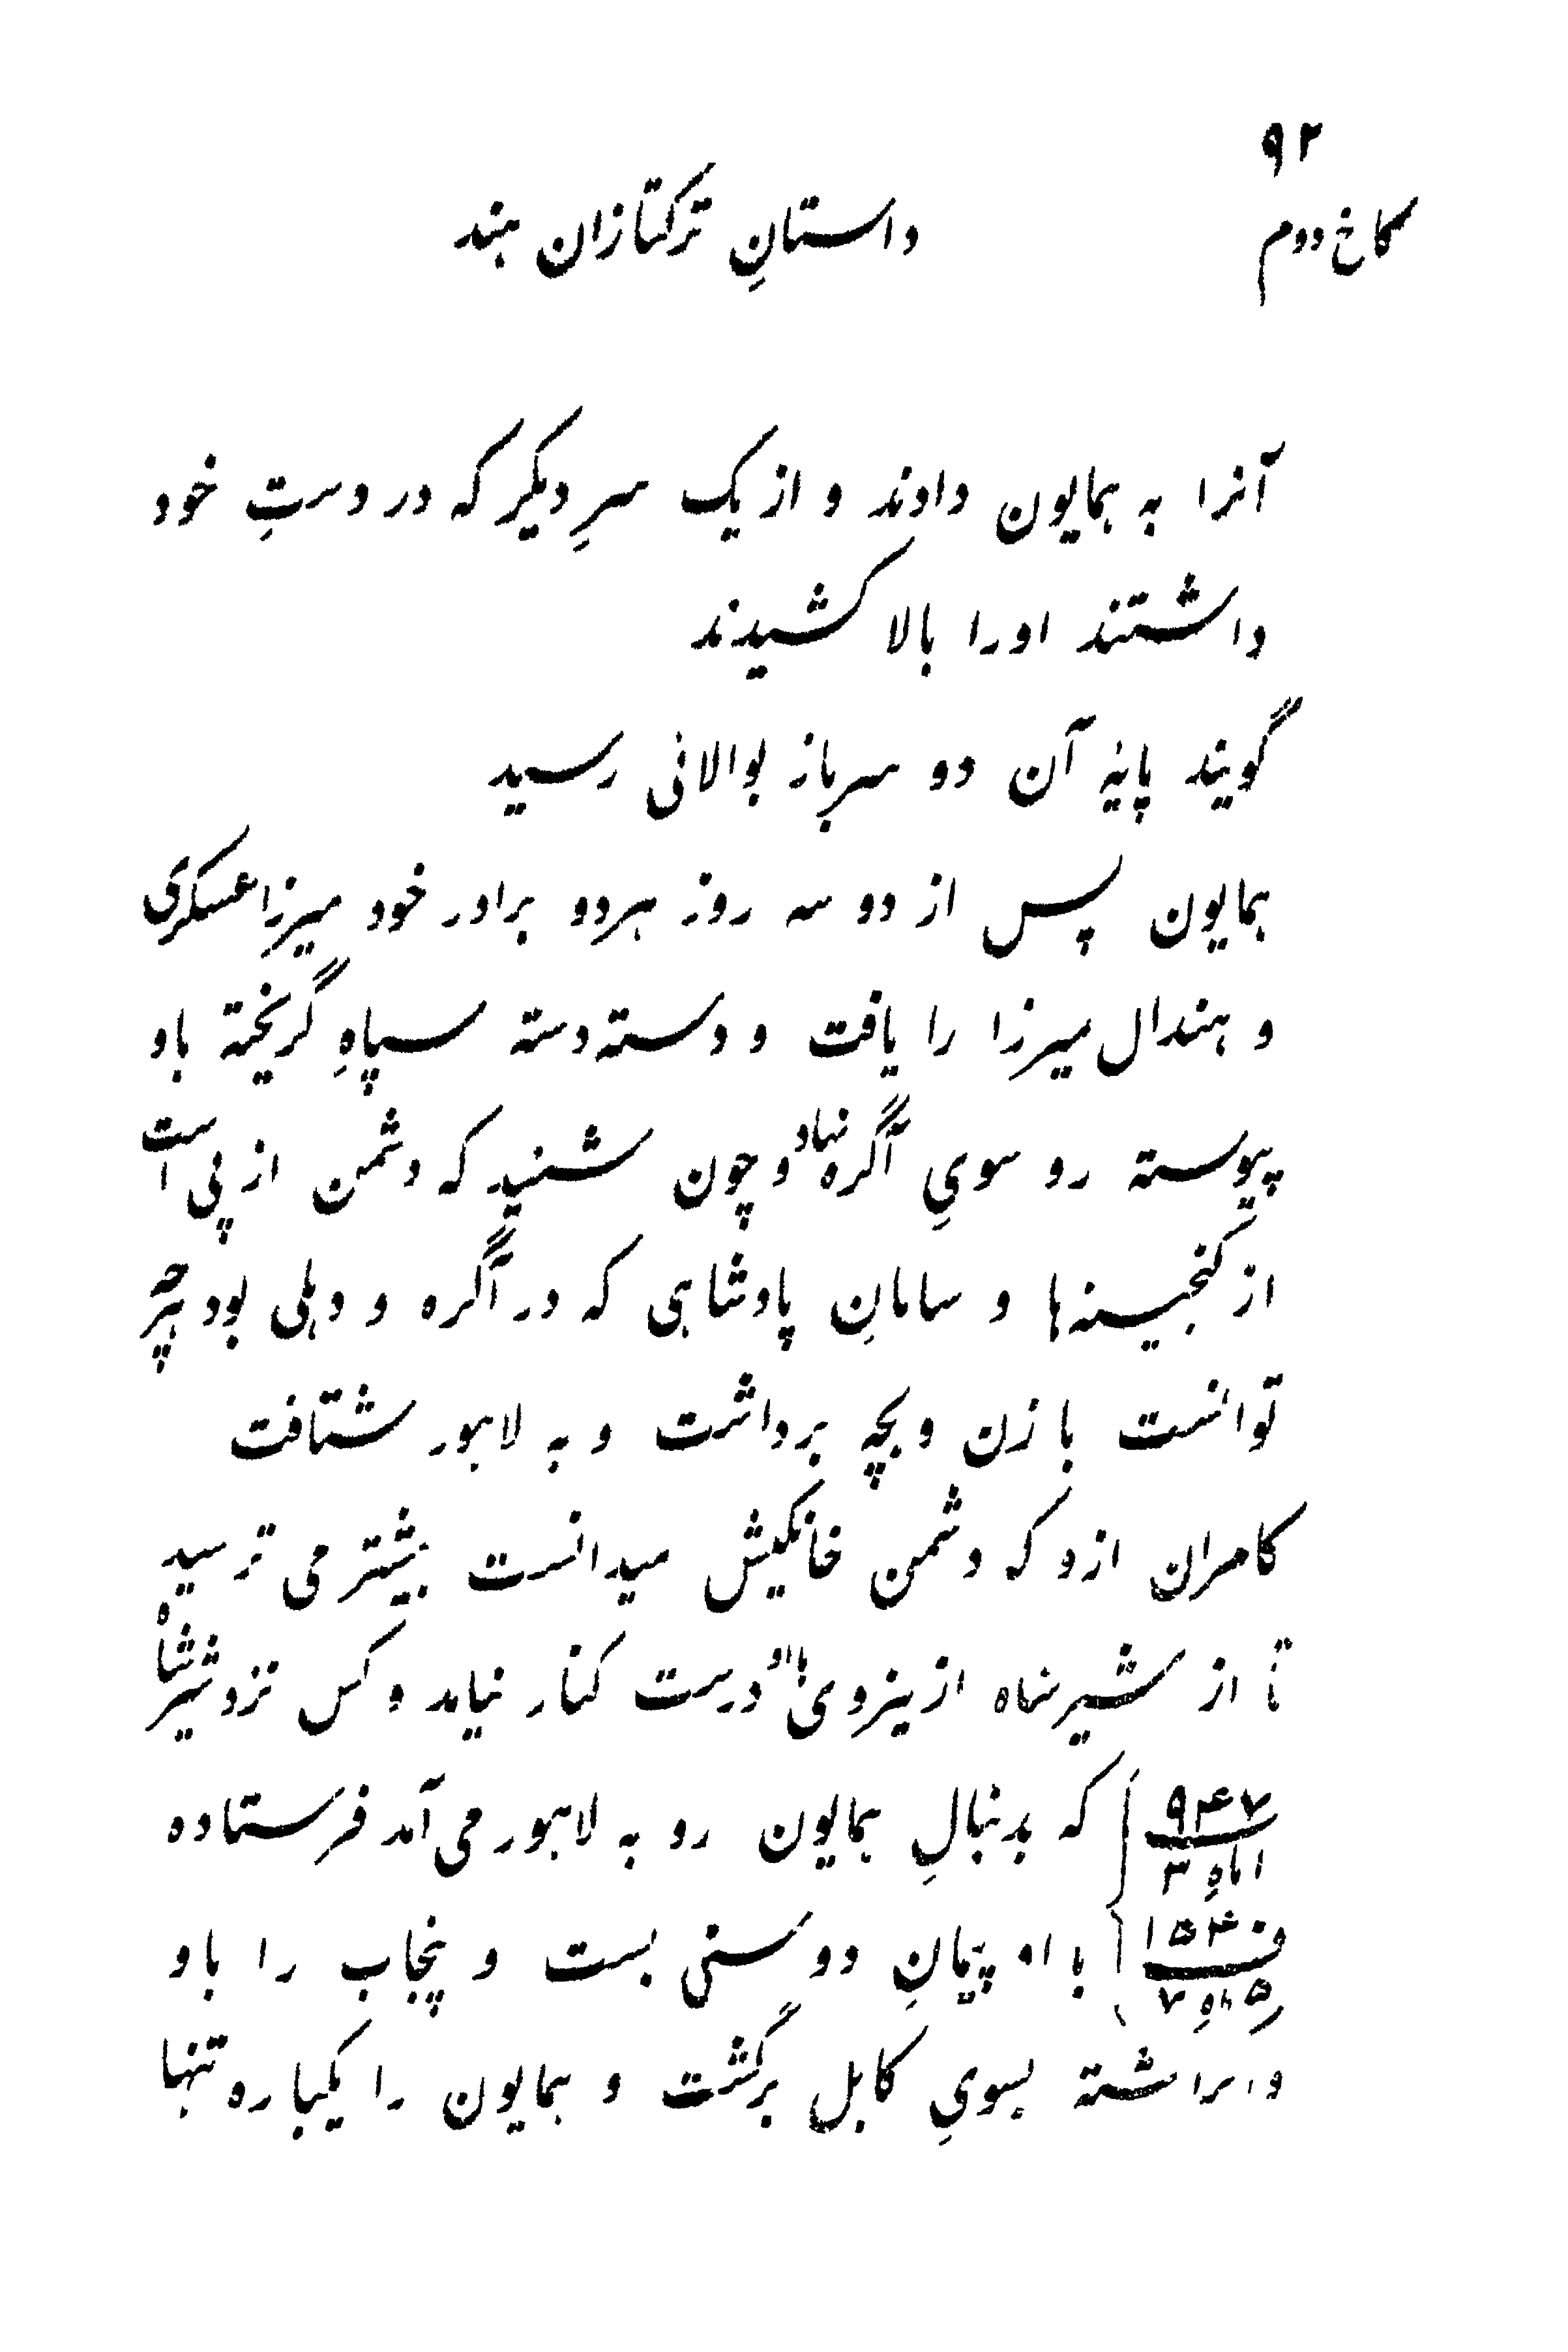 ۹۲
کاخ دوم
داستانِ ترکتازان هند
آنرا به همایون دادند و از یک سرِ دیگر که در دستِ خود
داشتند اورا بالا کشیدند
گویند پایهٔ آن دو سرباز بوالائی رسید
همایون پس از دو سه روز هردو برادر خود میرزا عسکری
و هندال میرزا را یافت و دسته دسته سپاهِ گریخته باو
پیوسته رو سویِ آگره نهاد و چون شنید که دشمن از پی است
از گنجینه‌ها و سامانِ پادشاهی که در آگره و دهلی بود هرچه
توانست با زن و بچه برداشت و به لاهور شتافت
کامران ازو که دشمن خانگیش میدانست بیشتر می ترسید
تا از شیرشاه ازینروی بااو درست کنار نیامد و کس نزد شیرشاه
۹۴۷ که بدنبالِ همایون رو به لاهور می آمد فرستاده
۱ ماهِ ۳
۱۵۴ با او پیمانِ دوستی بست و پنجاب را باو
۵ ماهِ ۷
واداشته بسویِ کابل برگشت و همایون را یکباره تنها